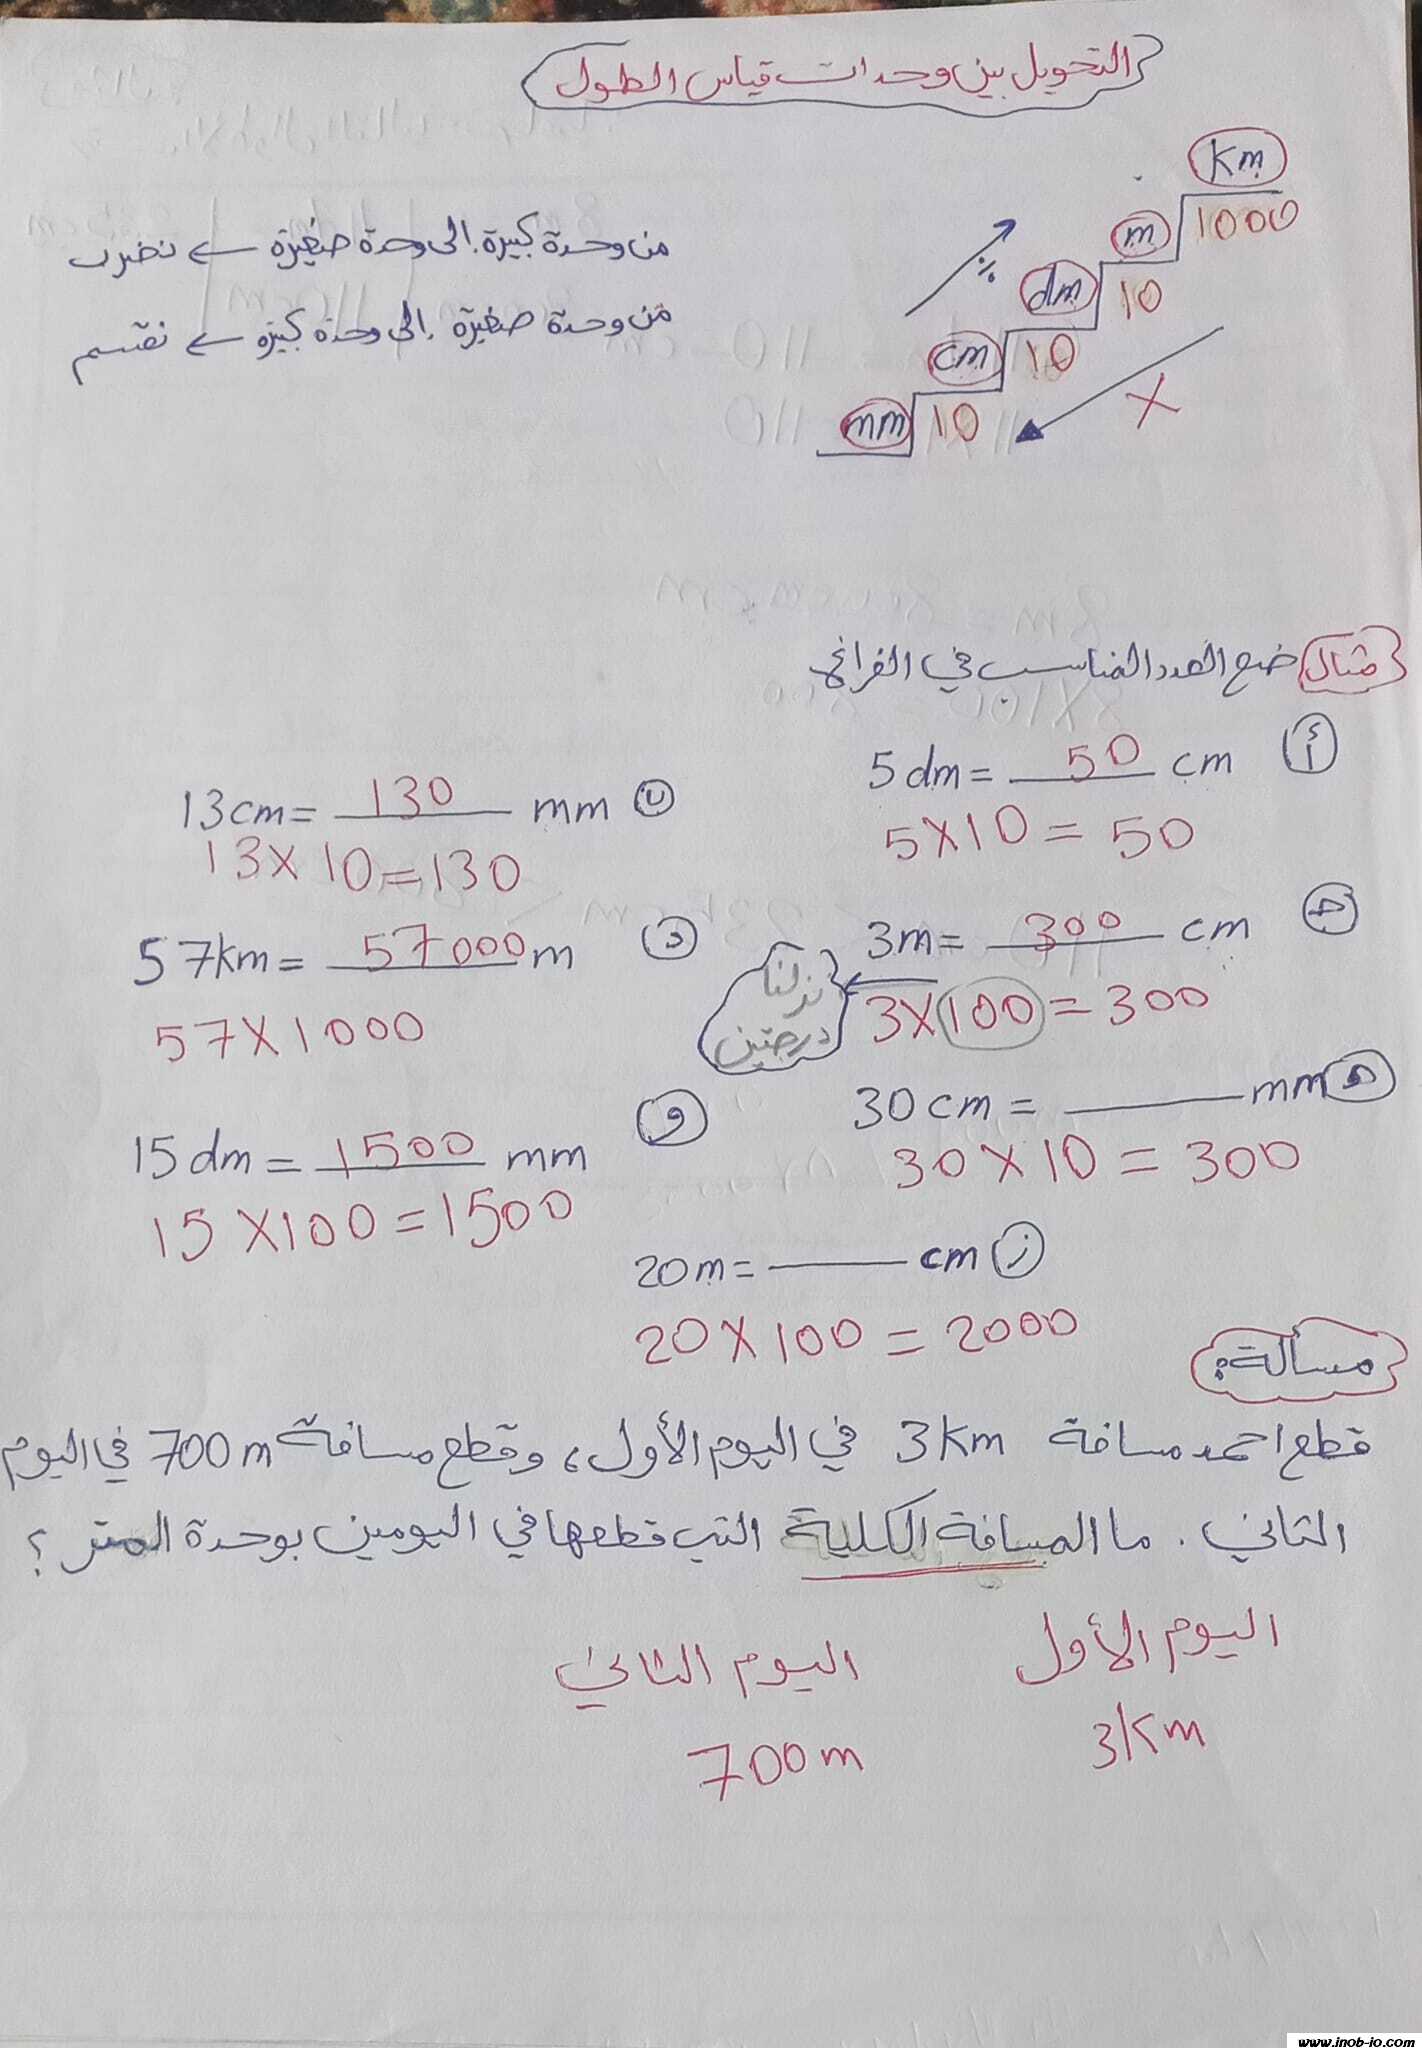 التحويل بين وحدات قياس الطول
km
1000
m
10
dm
10
cm
10
mm
÷
X
من وحدة كبيرة إلى وحدة صغيرة ← نضرب
من وحدة صغيرة إلى وحدة كبيرة ← نقسم
مثال ضع العدد المناسب في الفراغ
أ 5 dm = 50 cm
5 X 10 = 50
ب 13 cm = 130 mm
13 X 10 = 130
جـ 3m = 300 cm
3 X 100 = 300
نزلنا
درجتين
د 57km = 57000 m
57 X 1000
هـ 30 cm = ____ mm
30 X 10 = 300
و 15 dm = 1500 mm
15 X 100 = 1500
ز 20m = ____ cm
20 X 100 = 2000
مسألة:
قطع احمد مسافة 3 Km في اليوم الأول، وقطع مسافة 700 m في اليوم
الثاني. ما المسافة الكلية التي قطعها في اليومين بوحدة المتر ؟
اليوم الأول
3 Km
اليوم الثاني
700 m
www.inob-io.com